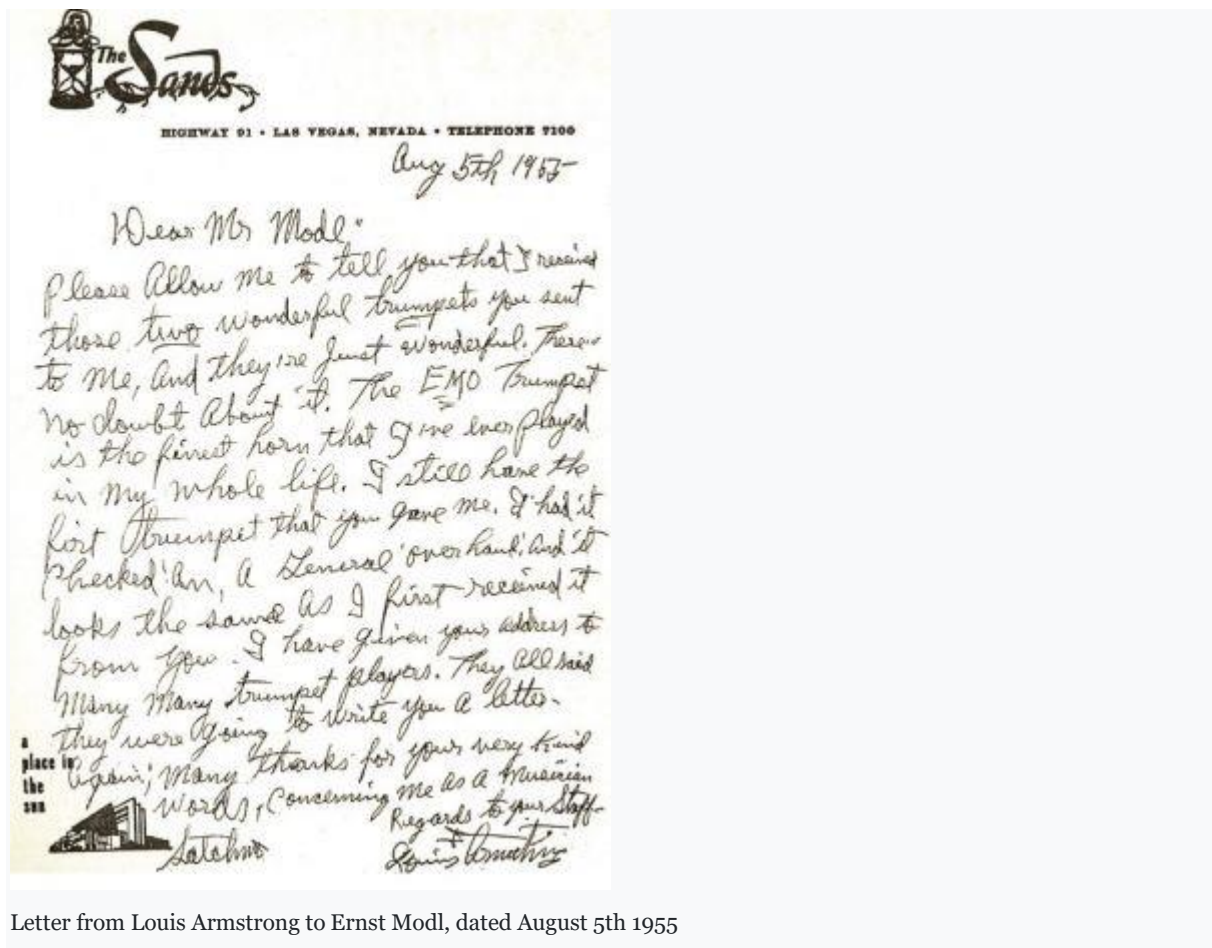 The Sands
HIGHWAY 91 • LAS VEGAS, NEVADA • TELEPHONE 7100
Aug 5th 1955
Dear Mr Modl"
Please Allow me to tell you that I received
those two wonderful trumpets you sent
to me, And they're Just wonderful. There's
no doubt About it. The EMO Trumpet
is the finest horn that I've ever played
in my whole life. I still have the
first trumpet that you gave me. I had it
checked' A General 'overhaul', And it
looks the same as I first received it
from you. I have given your address to
Many Many trumpet players. They All said
they were going to write you A letter.
Again, Many thanks for your very kind
words, Concerning me As A Musician
Regards to your Staff
Satchmo
Louis Armstrong
a
place in
the
sun
Letter from Louis Armstrong to Ernst Modl, dated August 5th 1955